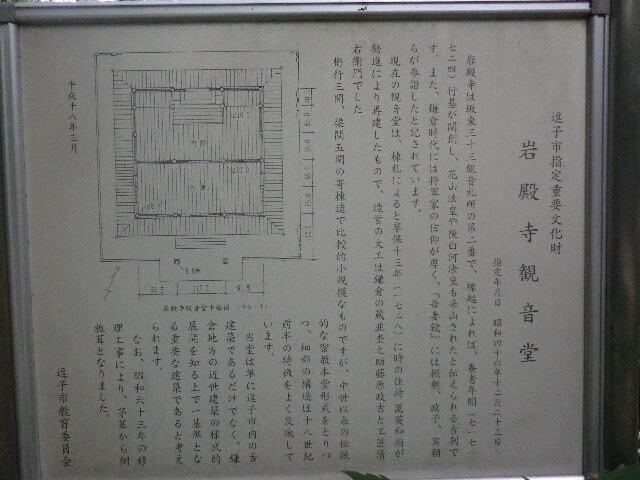 逗子市指定重要文化財
岩殿寺観音堂
指定年月日 昭和四十六年十二月二十三日
岩殿寺は坂東三十三観音札所の第二番で、縁起によれば、養老年間（七一七―
七二四）行基が開創し、花山法皇や後白河法皇も来山されたと伝えられる古刹で
す。また、鎌倉時代には将軍家の信仰が厚く、『吾妻鏡』には頼朝、政子、実朝
らが参詣したと記されています。
現在の観音堂は、棟札によると享保十三年（一七二八）に時の住持 萬英和尚が
勧進により再建したもので、造営の大工は鎌倉の蔵並杢之助藤原政吉と工匠清
右衛門でした
桁行三間、梁間五間の寄棟造で比較的小規模なものですが、中世以来の伝統
的な密教本堂形式をとりつ
つ、細部の構造は十八世紀
前半の特徴をよく反映して
います。
当堂は単に逗子市内の古
建築であるだけでなく、鎌
倉地方の近世建築の様式的
展開を知る上で一基準とな
る重要な建築であると考え
られます。
なお、昭和六十三年の修
理工事により、茅葺から銅
板葺となりました。
逗子市教育委員会
平成十八年三月
岩殿寺観音堂平面図